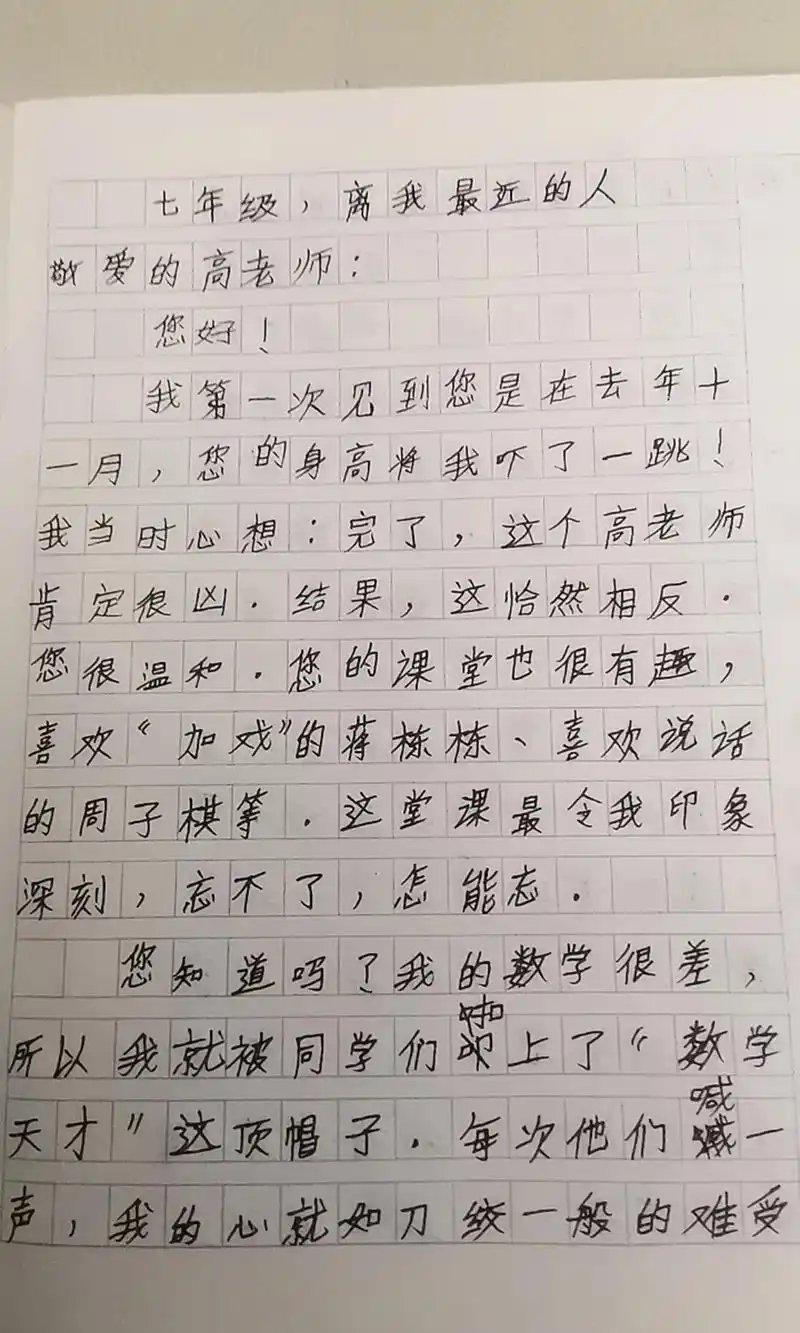 七年级，离我最近的人
敬爱的高老师：
您好！
我第一次见到您是在去年十
一月，您的身高将我吓了一跳！
我当时心想：完了，这个高老师
肯定很凶．结果，这恰然相反．
您很温和．您的课堂也很有趣，
喜欢“加戏”的蒋栋栋、喜欢说话
的周子棋等．这堂课最令我印象
深刻，忘不了，怎能忘．
您知道吗？我的数学很差，
所以我就被同学们上了“数学
天才”这顶帽子．每次他们喊一
声，我的心就如刀绞一般的难受